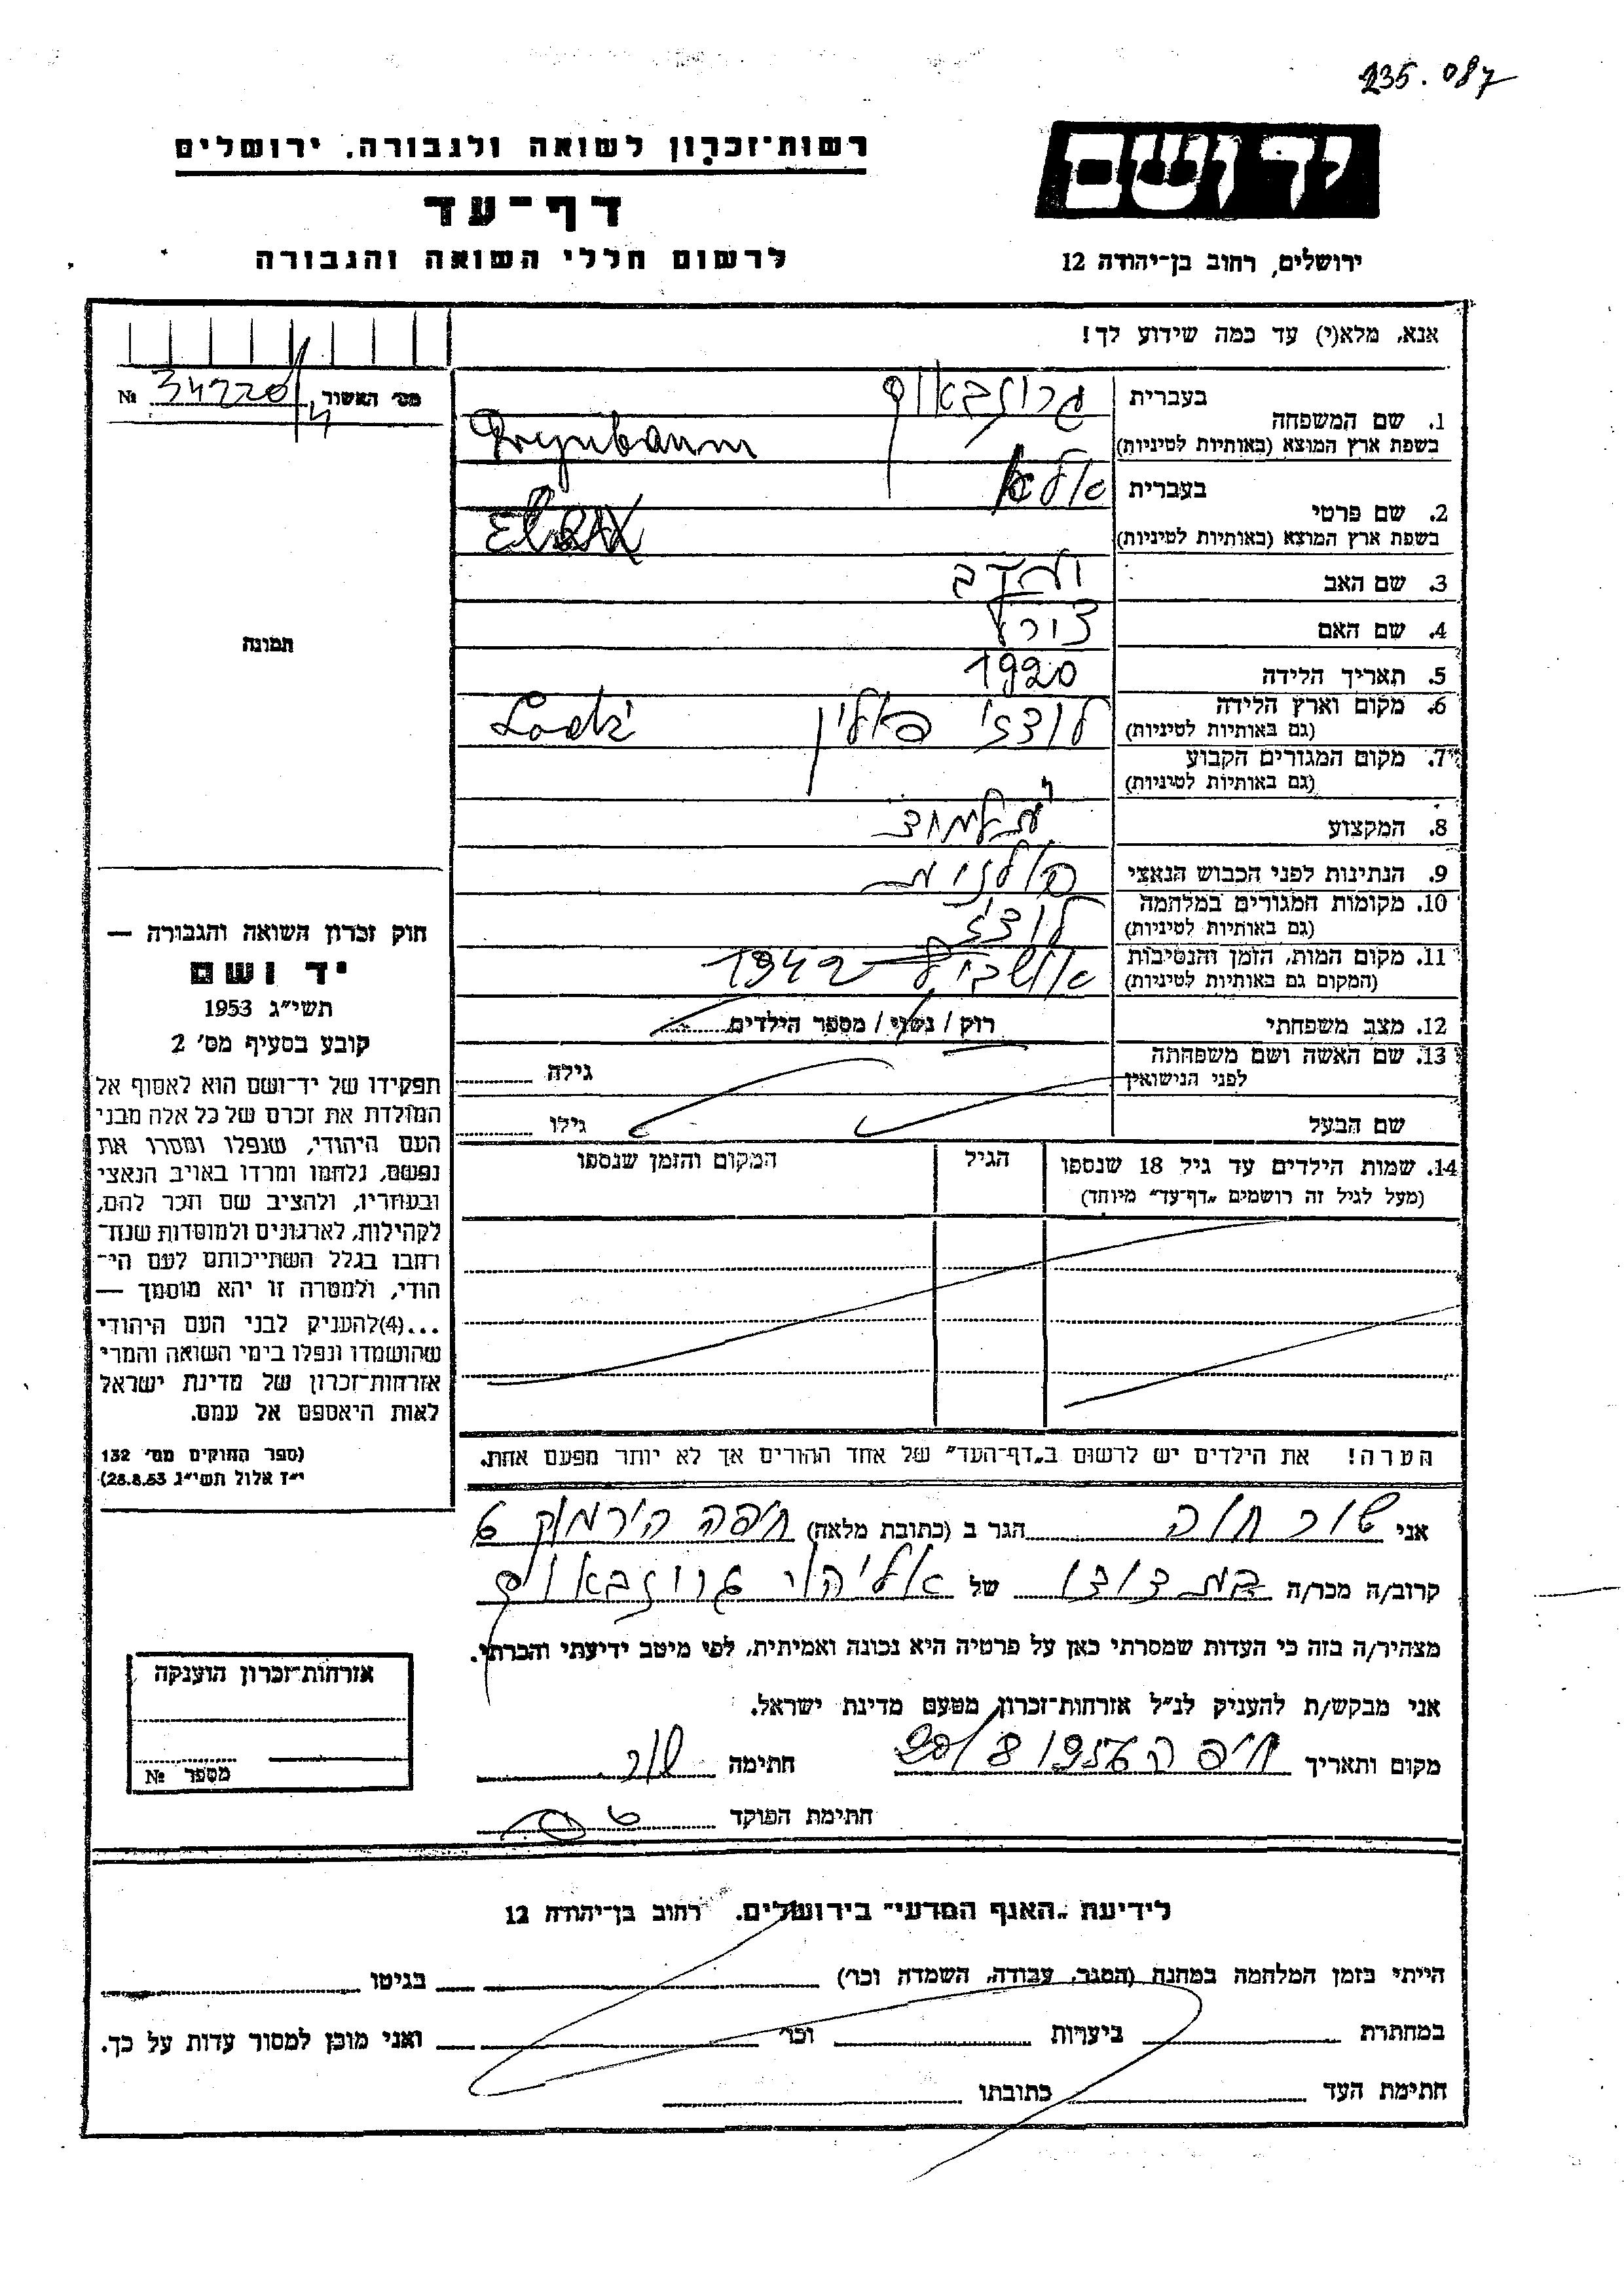 235.087
רשות־זכרון לשואה ולגבורה, ירושלים
יד ושם
דף־עד
לרשום חללי השואה והגבורה
ירושלים, רחוב בן־יהודה 12
אנא, מלא(י) עד כמה שידוע לך!
מס׳ האשור 34220/4 №
1. שם המשפחה
בעברית גרונבאום
בשפת ארץ המוצא (באותיות לטיניות)
2. שם פרטי
בעברית
בשפת ארץ המוצא (באותיות לטיניות)
3. שם האב
4. שם האם
5. תאריך הלידה 1920
6. מקום וארץ הלידה לודז׳ פולין Lodz
(גם באותיות לטיניות)
7. מקום המגורים הקבוע
(גם באותיות לטיניות)
8. המקצוע
9. הנתינות לפני הכבוש הנאצי פולנית
10. מקומות המגורים במלחמה לודז
(גם באותיות לטיניות)
11. מקום המות, הזמן והנסיבות 1942
(המקום גם באותיות לטיניות)
12. מצב משפחתי רוק / נשוי / מספר הילדים
13. שם האשה ושם משפחתה גילה
לפני הנישואין
שם הבעל גילו
14. שמות הילדים עד גיל 18 שנספו הגיל המקום והזמן שנספו
(מעל לגיל זה רושמים „דף־עד״ מיוחד)
הערה! את הילדים יש לרשום ב„דף־העד״ של אחד ההורים אך לא יותר מפעם אחת.
תמונה
חוק זכרון השואה והגבורה —
יד ושם
תשי״ג 1953
קובע בסעיף מס׳ 2
תפקידו של יד־ושם הוא לאסוף אל
המולדת את זכרם של כל אלה מבני
העם היהודי, שנפלו ומסרו את
נפשם, נלחמו ומרדו באויב הנאצי
ובעוזריו, ולהציב שם וזכר להם,
לקהילות, לארגונים ולמוסדות שנח־
רבו בגלל השתייכותם לעם הי־
הודי, ולמטרה זו יהא מוסמך —
...(4) להעניק לבני העם היהודי
שהושמדו ונפלו בימי השואה והמרי
אזרחות־זכרון של מדינת ישראל
לאות היאספם אל עמם.
(ספר החוקים מס׳ 132
י״ז אלול תשי״ג 28.8.53)
אני שור חוה הגר ב (כתובת מלאה) חיפה הירמוק 6
קרוב/ה מכר/ה בת דודו של אליהו גרונבאום
מצהיר/ה בזה כי העדות שמסרתי כאן על פרטיה היא נכונה ואמיתית, לפי מיטב ידיעתי והכרתי.
אני מבקש/ת להעניק לנ״ל אזרחות־זכרון מטעם מדינת ישראל.
מקום ותאריך חיפה חתימה שור
חתימת הפוקד
אזרחות־זכרון הוענקה
מספר №
לידיעת „האגף המדעי״ בירושלים, רחוב בן־יהודה 12
הייתי בזמן המלחמה במחנה (הסגר, עבודה, השמדה וכו׳) בגיטו
במחתרת ביערות וכו׳ ואני מוכן למסור עדות על כך.
חתימת העד כתובתו